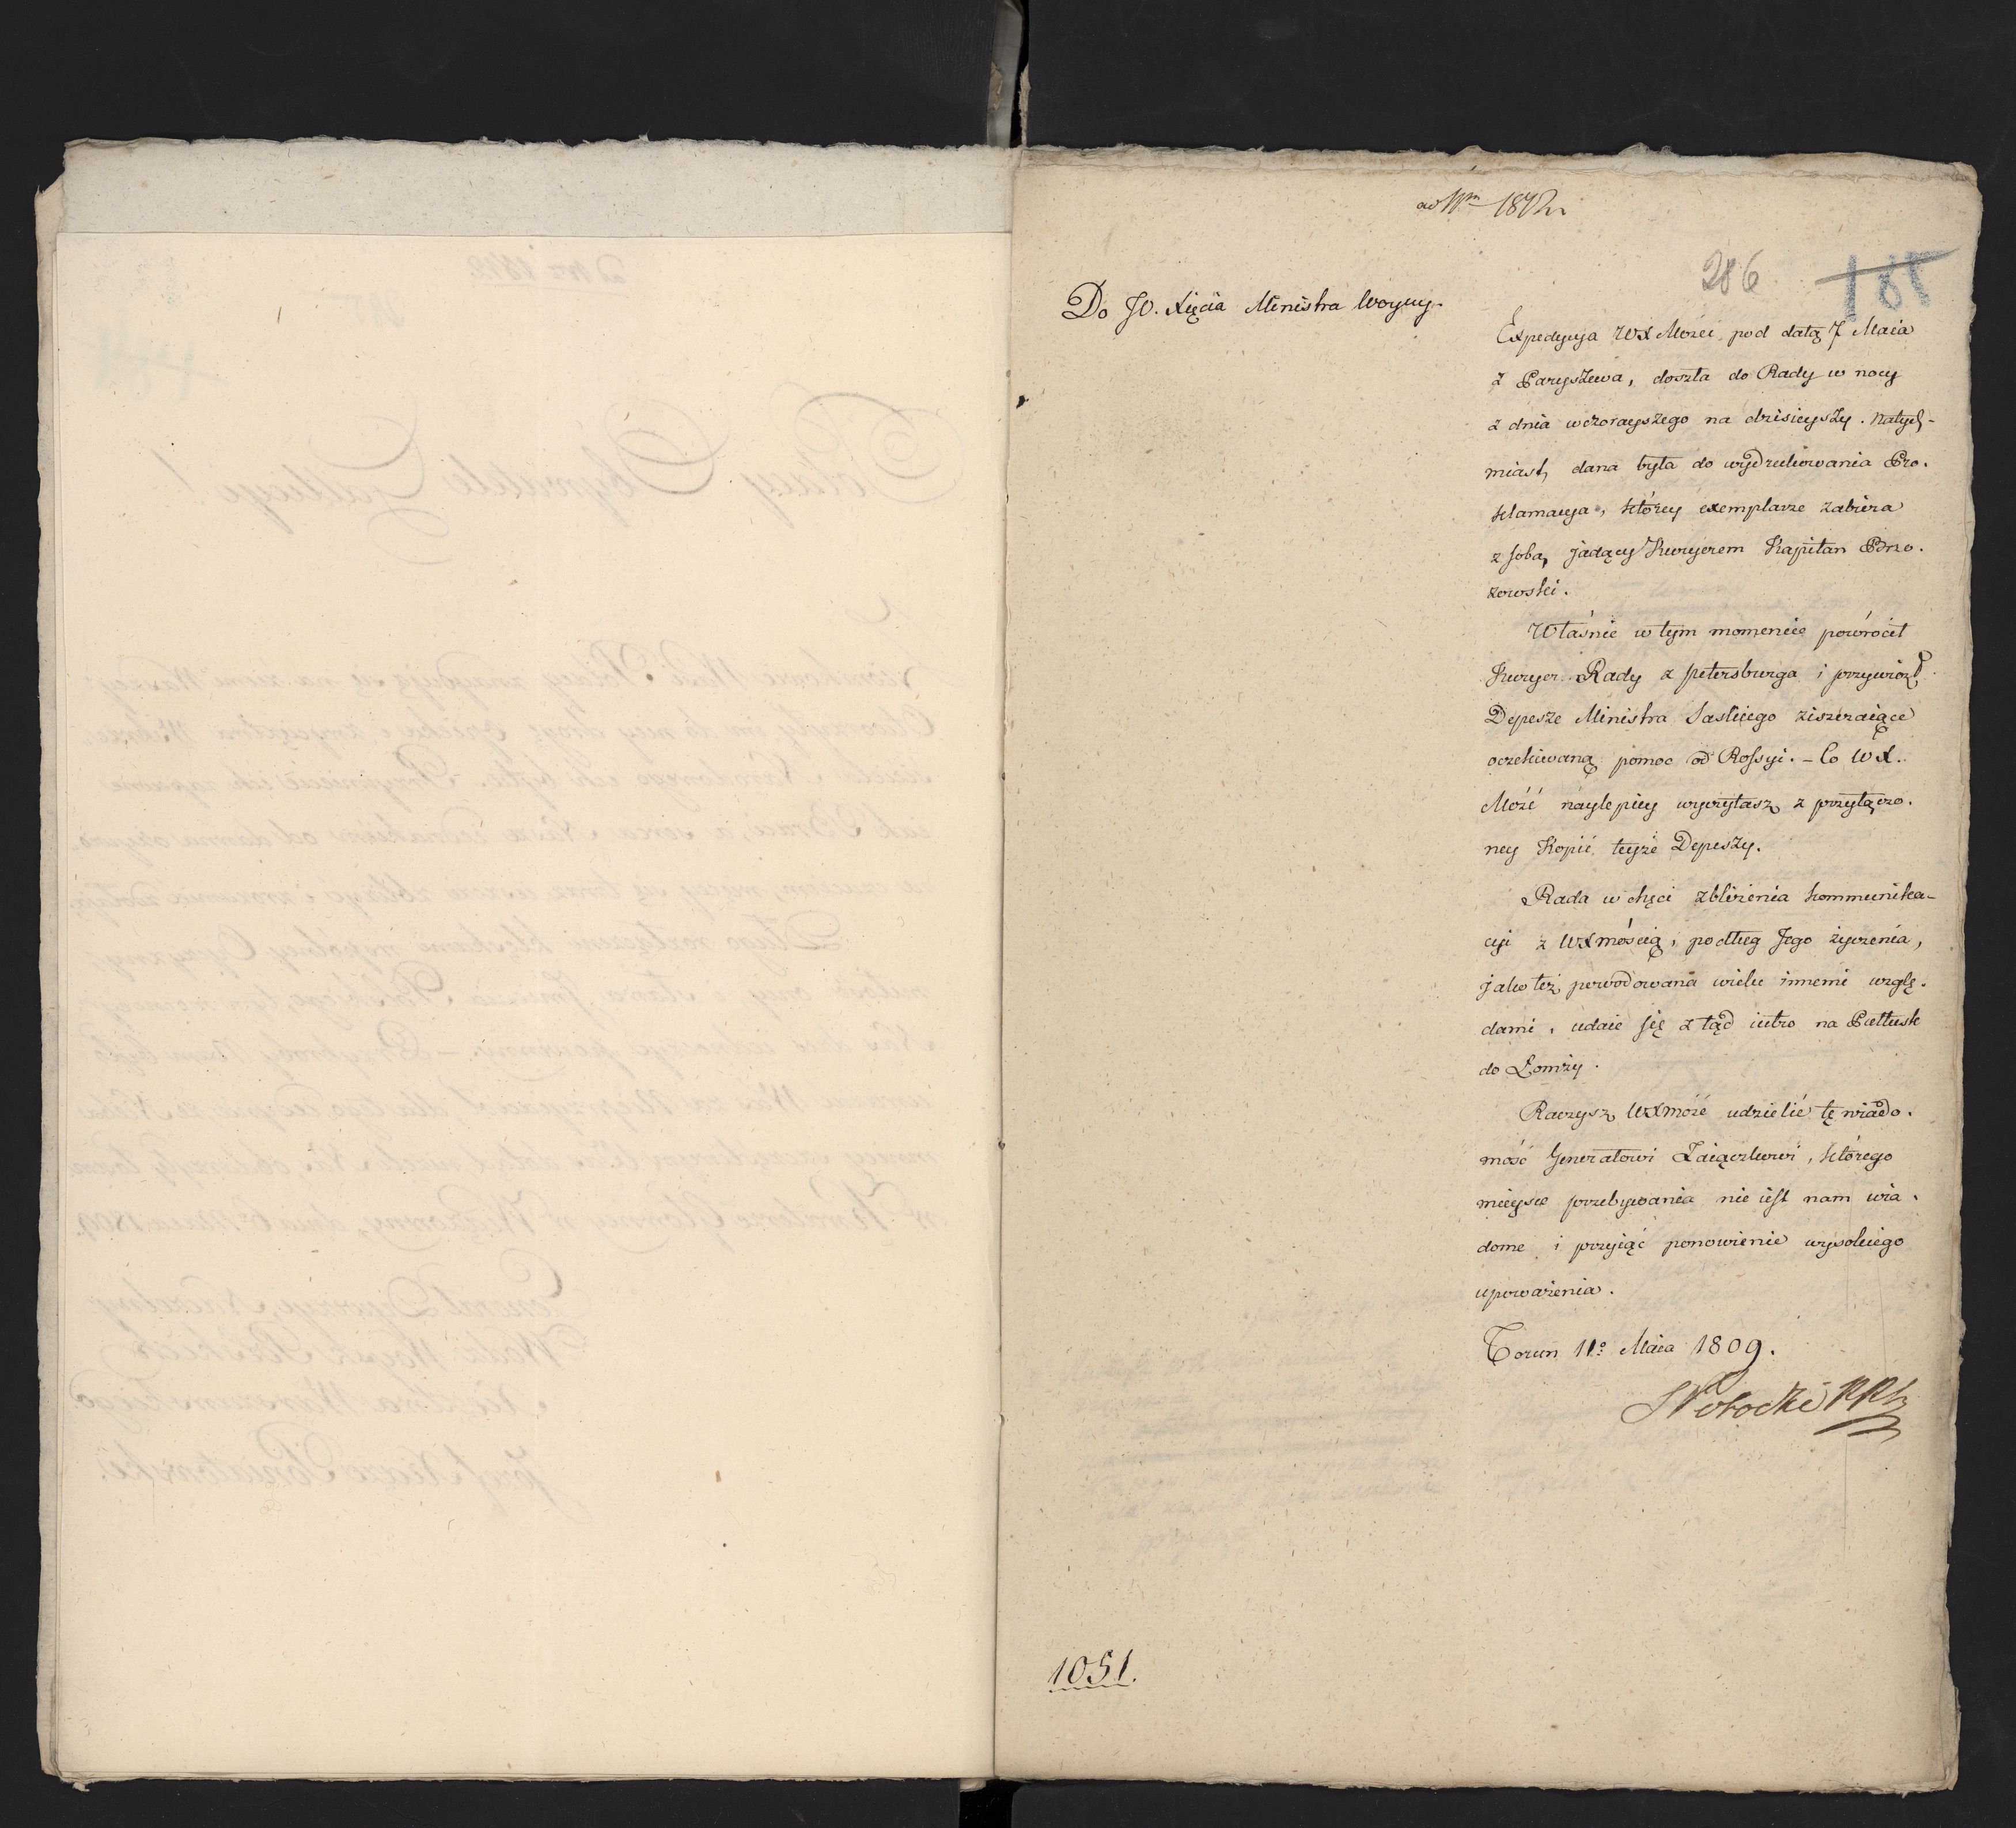 ad Nm 1842
286 188
Do JO. Xięcia Ministra Woyny.
Expedycyja WX Mości, pod datą 7 Maia
z Paryszewa, doszła do Rady w nocy
z dnia wczorayszego na dzisieyszy. Natych-
miast, dana była do wydrukowania Pro.
klamacyja, którey exemplarze zabiera
z sobą, jadący Kuryerem Kapitan Brzo.
zowski.
Właśnie w tym momencie powrócił
Kuryer Rady z Petersburga i przywiózł
Depesze Ministra Saskiego ziszczaiące
oczekiwaną pomoc od Rossyi. – Co WX.
Mość naylepiey wyczytasz z przyłączo.
ney Kopii teyże Depeszy.
Rada w chęci zbliżenia kommunika-
cyi z WXmością, podług Jego życzenia,
jako też powodowana wielu innemi wzglę.
dami, udaie się z tąd iutro na Pułtusk
do Łomży.
Raczysz WXmość udzielić tę wiado.
mość Generałowi Zaiączkowi, którego
mieysce przebywania nie iest nam wia.
dome i przyiąć ponowienie wysokiego
upoważenia.
Toruń 11o Maia 1809.
S Potocki
1051.